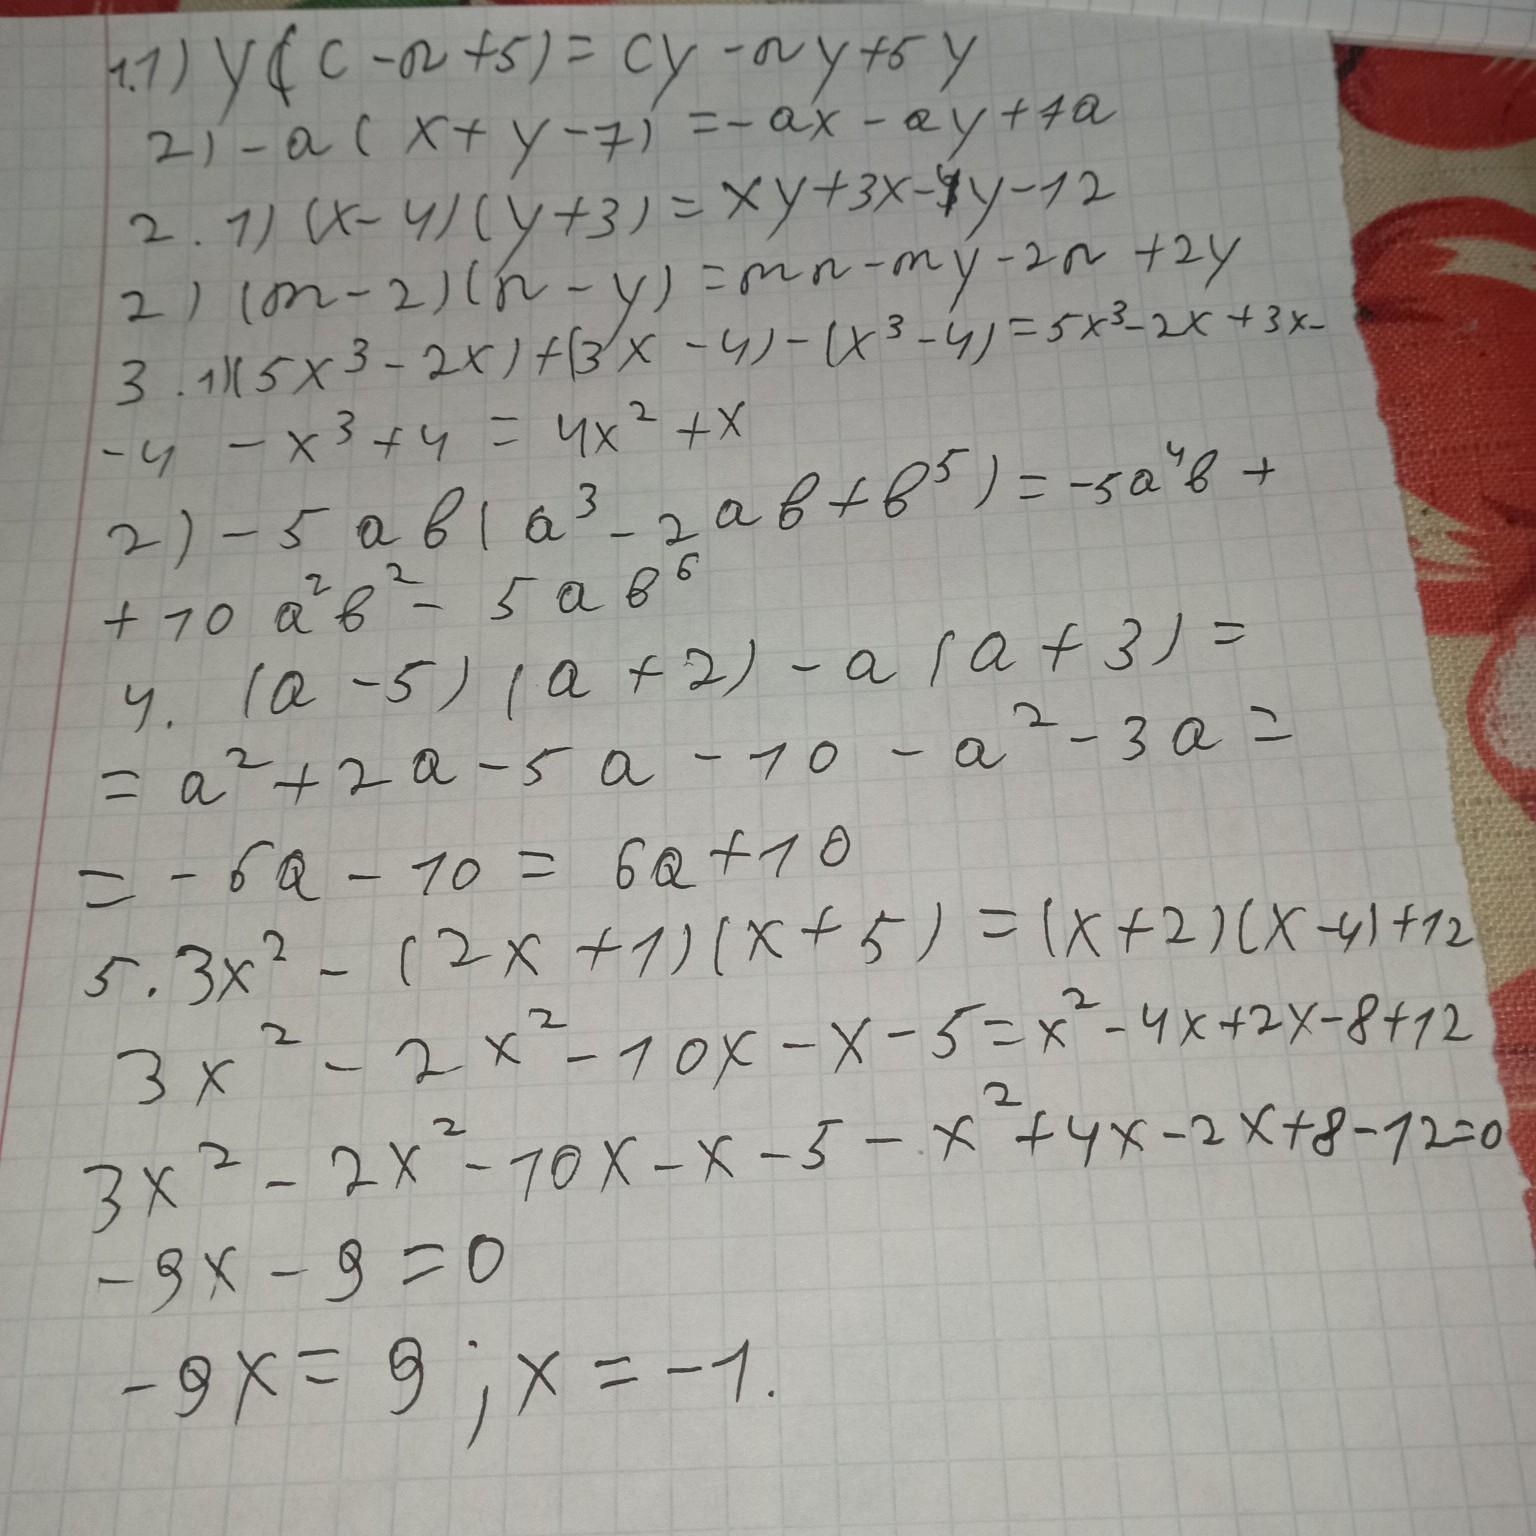 1.1) y(c-n+5)=cy-ny+5y
2) -a(x+y-7)=-ax-ay+7a
2.1) (x-4)(y+3)=xy+3x-4y-12
2) (m-2)(n-y)=mn-my-2n+2y
3.1)(5x³-2x)+(3x-4)-(x³-4)=5x³-2x+3x-
-4-x³+4=4x²+x
2) -5ab(a³-2ab+b⁵)=-5a⁴b+
+10a²b²-5ab⁶
4. (a-5)(a+2)-a(a+3)=
=a²+2a-5a-10-a²-3a=
=-6a-10=6a+10
5. 3x²-(2x+1)(x+5)=(x+2)(x-4)+12
3x²-2x²-10x-x-5=x²-4x+2x-8+12
3x²-2x²-10x-x-5-x²+4x-2x+8-12=0
-9x-9=0
-9x=9; x=-1.